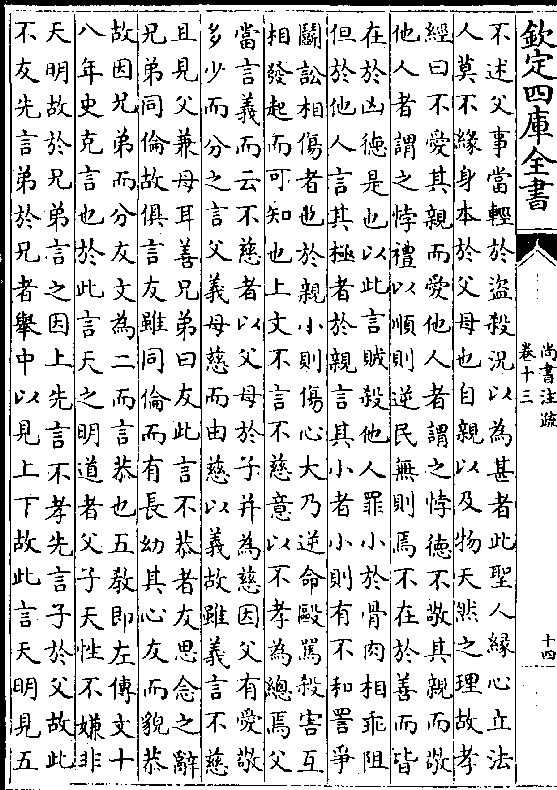 欽定四庫全書
尚書注疏
卷十三
十四
不述父事當輕於盜殺況以為甚者此聖人緣心立法
人莫不緣身本於父母也自親以及物天然之理故孝
經曰不愛其親而愛他人者謂之悖德不敬其親而敬
他人者謂之悖禮以順則逆民無則焉不在於善而皆
在於凶徳是也以此言賊殺他人罪小於骨肉相乖阻
但於他人言其極者於親言其小者小則有不和詈爭
鬬訟相傷者也於親小則傷心大乃逆命毆罵殺害互
相發起而可知也上文不言不慈意以不孝為總焉父
當言義而云不慈者以父母於子并為慈因父有愛敬
多少而分之言父義母慈而由慈以義故雖義言不慈
且見父兼母耳善兄弟曰友此言不恭者友思念之辭
兄弟同倫故俱言友雖同倫而有長幼其心友而貌恭
故因兄弟而分友文為二而言恭也五教即左傳文十
八年史克言也於此言天之明道者父子天性不嫌非
天明故於兄弟言之因上先言不孝先言子於父故此
不友先言弟於兄者舉中以見上下故此言天明見五